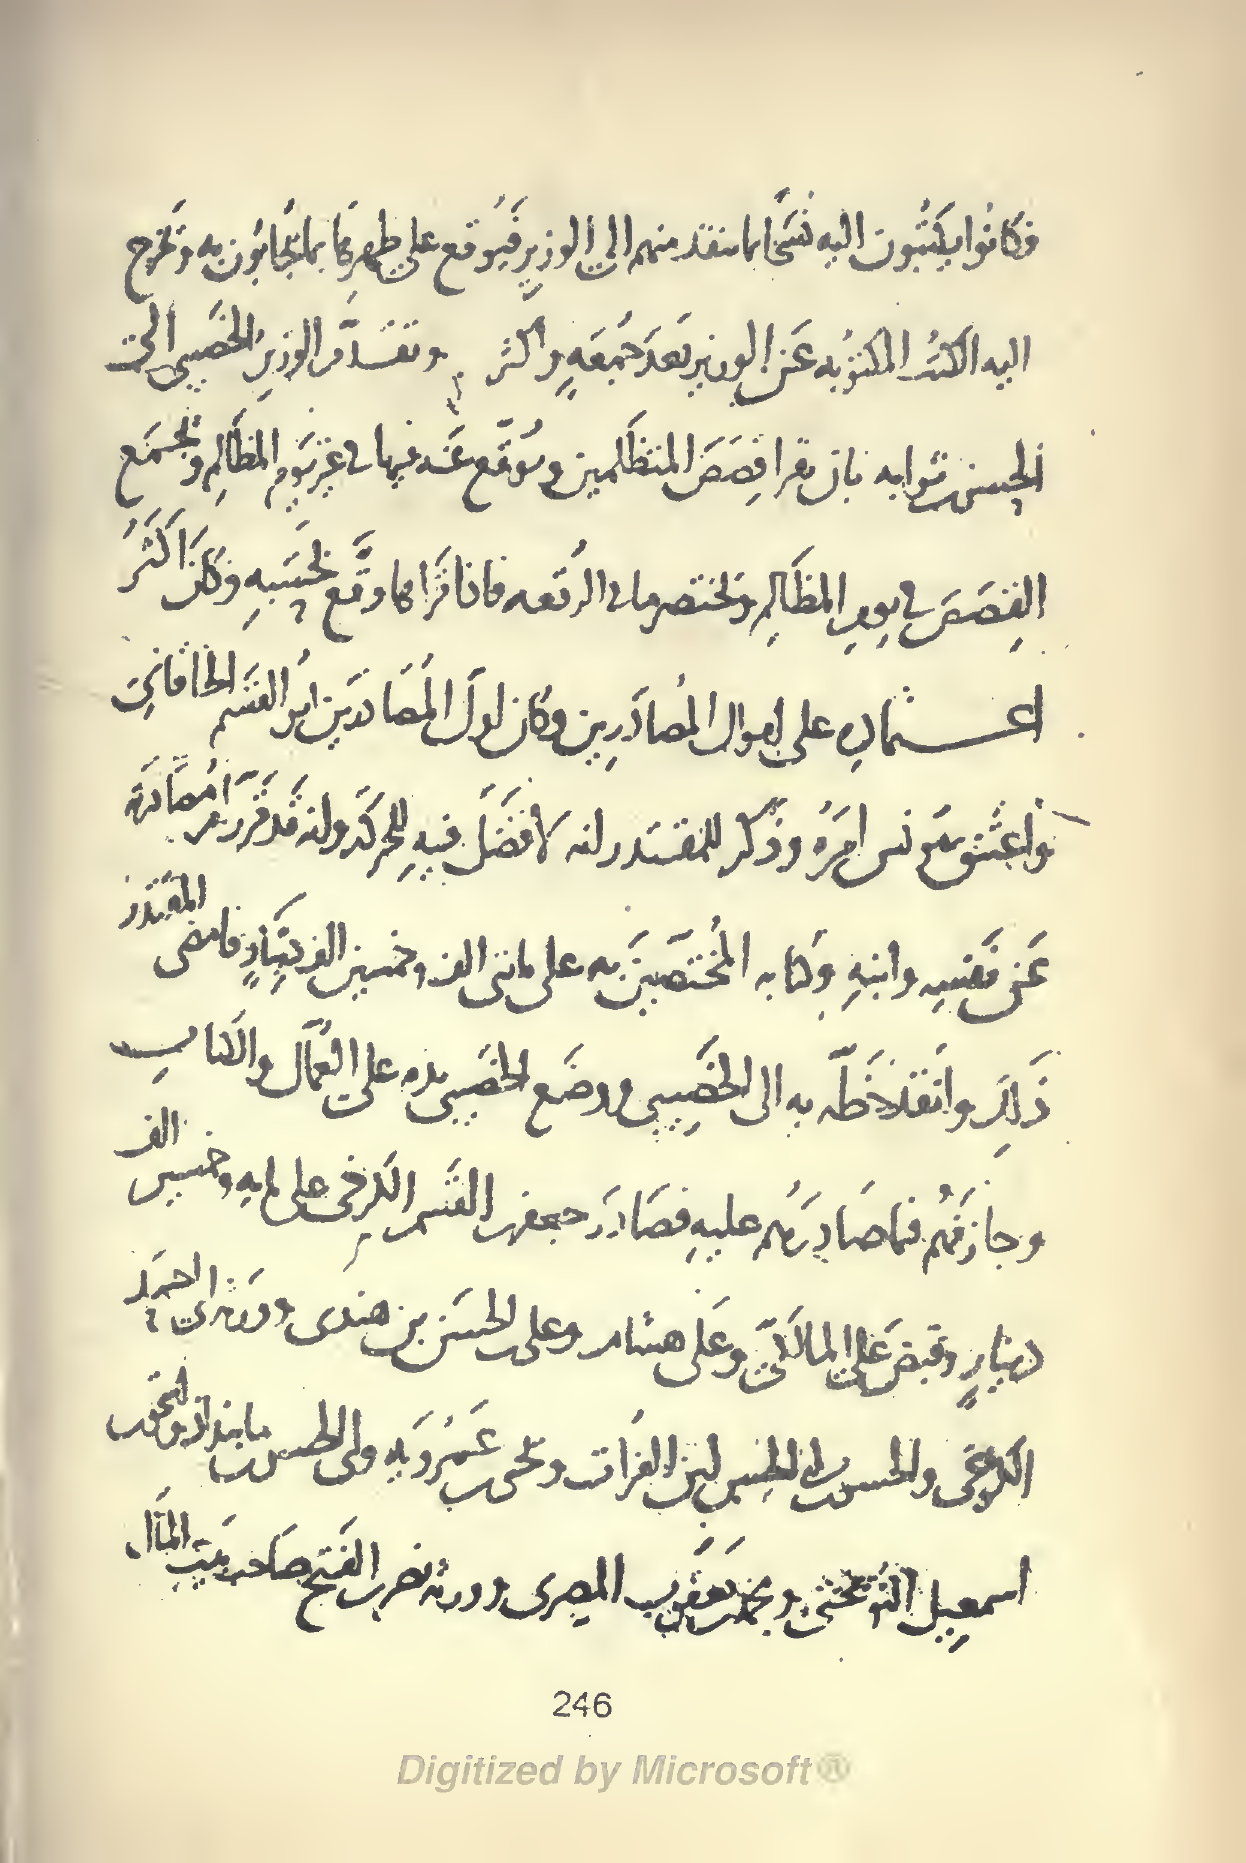 فكانوا يكتبون اليه نسخا بما ينفذ منهم الى الوزير فيوقع على ظهرها بما يجابون به وتخرج
اليه الكتب المكتوبه عن الوزير بعد جمعه واكثر وتقدم الوزير الخصيبى الى
الحسن ثوابه بان يقرا قصص المتظلمين ويوقع عنه فيها فى غير يوم المظالم وتجمع
القصص فى يوم المظالم ويختصر ما فى الرقعه فاذا قراها وقع بحسبه وكان اكثر
اعتماده على اموال المصادرين وكان اول المصادرين ابو القسم الخاقانى
واعتنق مونس امره وذكر للمقتدر انه لا فضل فيه للحركه وانه قد قرر امر مصادرته
عن نفسه وابنه وكتابه المختصين به على مائتى الف وخمسين الف دينار فامضى المقتدر
ذلك وانفذ خطه به الى الخصيبى ووضع الخصيبى يده على العمال والكتاب
وجازفهم فيما صادرهم عليه فصادر جعفر القسم الكرخى على مايه وخمسين الف
دينار وقبض على المالكى وعلى هشام وعلى الحسن بن هندى وورثه ابى احمد
الكرخى والحسن ابى الحسن ابن الفرات ويحيى عمرويه والى الحسن مابنداذ واسحق
اسمعيل النوبختى ومحمد يعقوب المصرى وورثه نصر الفتح صاحب بيت المال
246
Digitized by Microsoft®